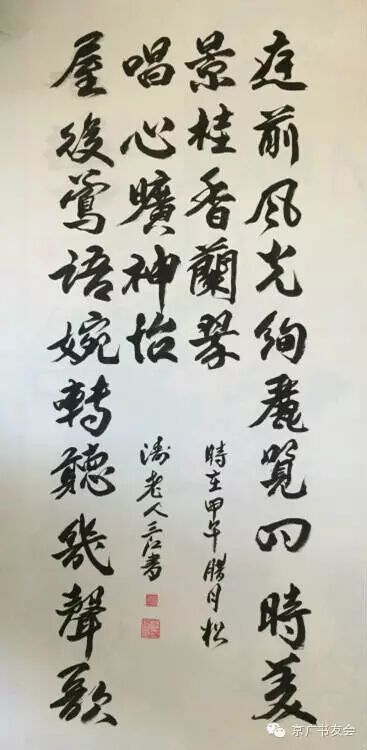 庭前风光绚麗覽四時美
景桂香蘭翠
屋後鶯語婉轉聽幾聲歌
唱心曠神怡
時在甲午腊月松
涛老人三江書
京广书友会